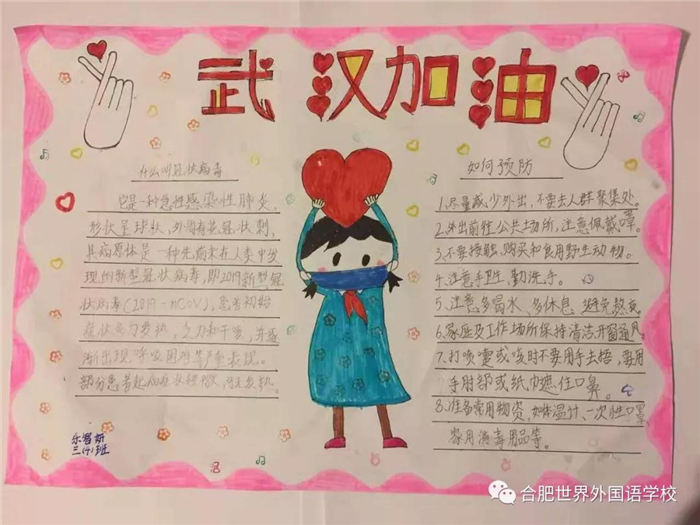 武汉加油
什么叫冠状病毒
它是一种急性感染性肺炎,
形状呈球状,外周有花冠状刺,
其病原体是一种先前未在人类中发
现的新型冠状病毒,即2019新型冠
状病毒(2019-nCoV),患者初始
症状多为发热、乏力和干咳,并逐
渐出现呼吸困难等严重表现。
部分患者起病症状轻微,
如何预防
1.尽量减少外出,不要去人群聚集处。
2.外出前往公共场所,注意佩戴口罩。
3.不要接触、购买和食用野生动物。
4.注意手卫生,勤洗手。
5.注意多喝水、多休息、避免熬夜。
6.家庭及工作场所保持清洁开窗通风。
7.打喷嚏或咳时不要用手去捂,要用
手肘部或纸巾遮住口鼻。
8.准备常用物资,如体温计、一次性口罩、
家用消毒用品等。
三(4)班
合肥世界外国语学校